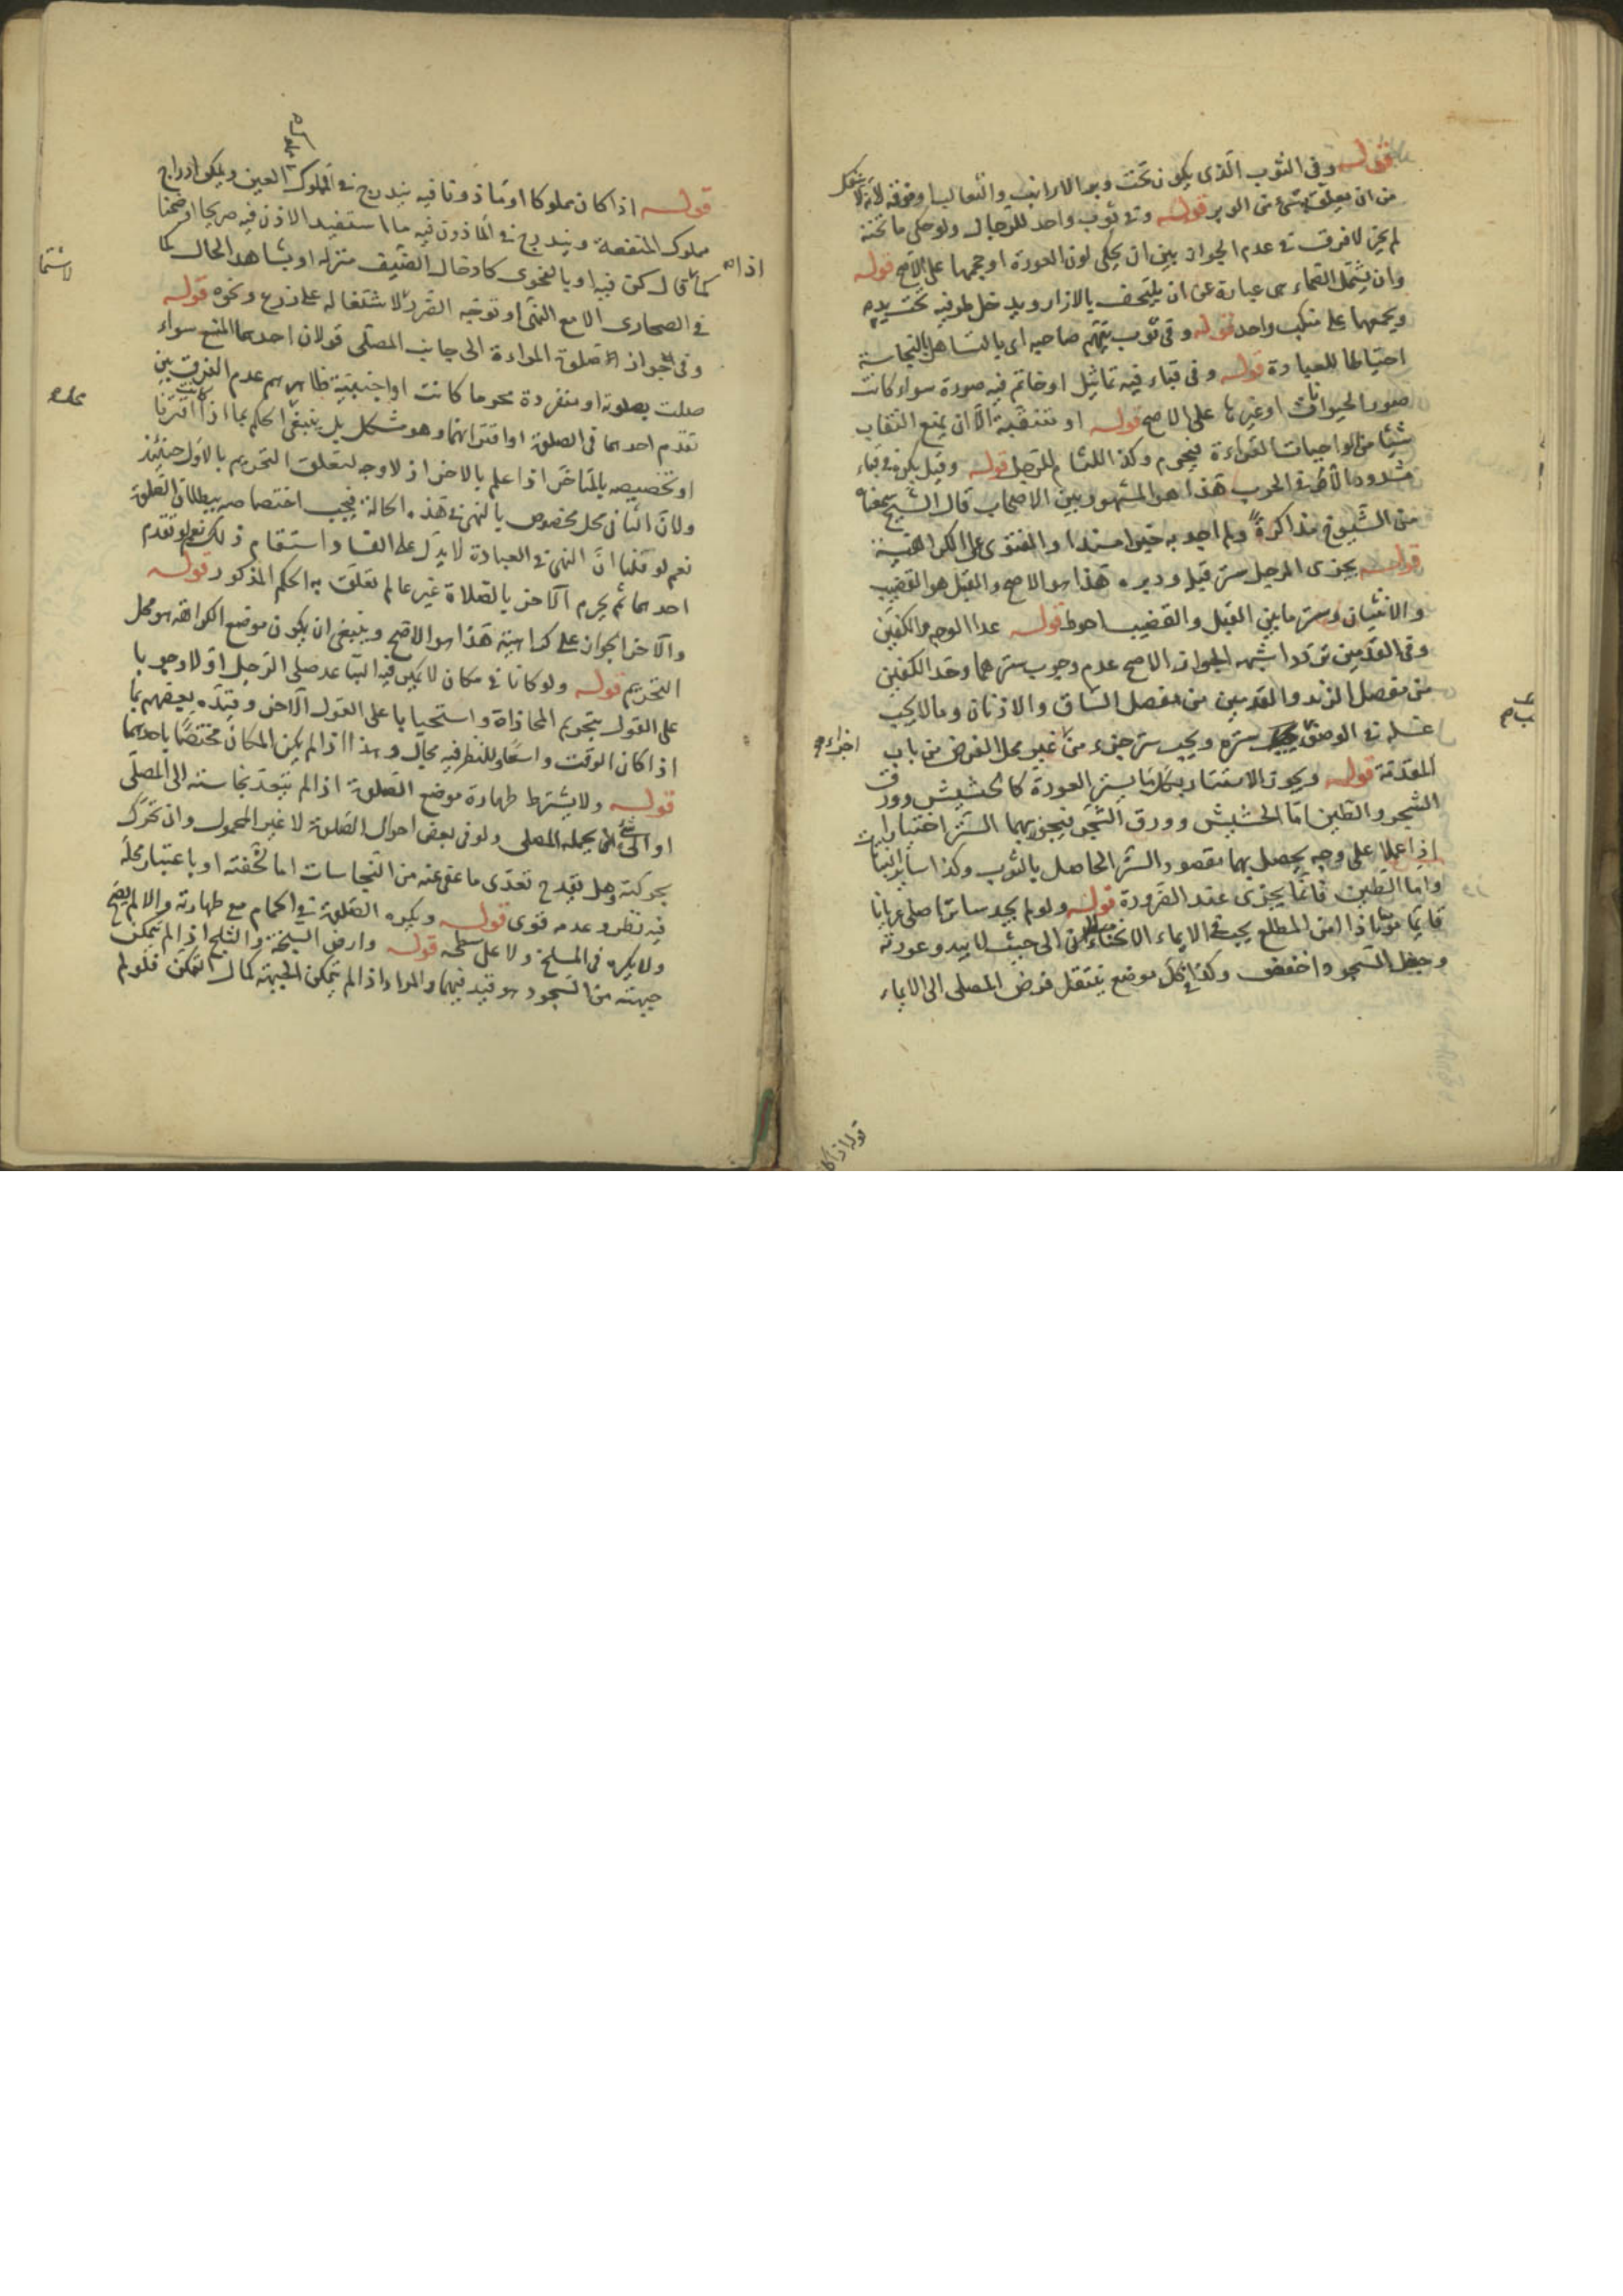 قوله وفي الثوب الذي يكون تحت وبر الارانب والثعالب او فوقه لانه لا ينفك
من ان يعلق شئ من الوبر قوله وفي ثوب واحد للرجال ولو حكى ما تحته
لم يجز لا فرق في عدم الجواز بين ان يحكي لون العورة او حجمها على الاصح قوله
وان يشتمل الصماء هي عبارة عن ان يلتحف بالازار ويدخل طرفيه تحت يده
ويجمعهما على منكب واحد قوله وفي ثوب يتهم صاحبه اى بالتساهل بالنجاسة
احتياطا للعبادة قوله وفي قباء فيه تماثيل او خاتم فيه صورة سواء كانت
صور الحيوانات او غيرها على الاصح قوله او متنقبة الا ان يمنع النقاب
شيئا من الواجبات القراءة فيحرم وكذا اللثام للرجل قوله وقيل يكره في قباء
مشدود الا في الحرب هذا هو المشهور بين الاصحاب قال الشيخ سمعناه
من الشيوخ مذاكرة ولم اجد به خبرا مسندا والفتوى على الكراهية
قوله يجزى الرجل ستر قبله ودبره هذا هو الاصح والقبل هو القضيب
والانثيان وستر ما بين القبل والقضيب احوط قوله عدا الوجه والكفين
وفي القدمين تردد اشبهه الجواز الاصح عدم وجوب سترهما وحد الكفين
من مفصل الزند والقدمين من مفصل الساق والاذنان وما لا يجب
غسله في الوضوء يجب ستره ويجب ستر جزء من غير محل الفرض من باب
المقدمة قوله ويجوز الاستتار بكل ما يستر العورة كالحشيش وورق
الشجر والطين اما الحشيش وورق الشجر فيجوز بهما الستر اختيارا
اذا علما على وجه يحصل بهما مقصود الستر الحاصل بالثوب وكذا سائر النبات
واما الطين فانما يجزى عند الضرورة قوله ولو لم يجد ساترا صلى عريانا
قائما موميا اذا امن المطلع يجب في الايماء الانحناء الى حيث لا يبدو عورته
وجعل السجود اخفض وكذا في كل موضع ينتقل فرض المصلي الى الايماء
قوله اذا كا
قوله اذا كان مملوكا او مأذونا فيه يندرج في المملوك العين ويمكن ادراج
مملوك المنفعة ويندرج في المأذون فيه ما استفيد الاذن فيه صريحا او ضمنا
كما قال كن فيه او بالفحوى كادخال الضيف منزله او بشاهد الحال كما
في الصحارى الا مع النهى او توجه الضرر لاشتغاله على زرع ونحوه قوله
وفي جواز صلوة المراءة الى جانب المصلى قولان احدهما المنع سواء
صلت بصلوته او منفردة محرما كانت او اجنبية ظاهرهم عدم الفرق بين
تقدم احدهما في الصلوة او اقترانهما وهو مشكل بل ينبغي الحكم بما اذا اقترنا
او تخصيصه بالمتاخر اذا علم بالاخر اذ لا وجه لتعلق التحريم بالاول حينئذ
ولان الثاني محل مخصوص بالنهى في هذه الحالة فيجب اختصاصه ببطلان الصلوة
نعم لو قلنا ان النهى في العبادة لا يدل على الفساد استقام ذلك نعم لو تقدم
احدهما ثم يحرم الآخر بالصلاة غير عالم تعلق به الحكم المذكور قوله
والآخر الجواز على كراهية هذا هو الاصح وينبغي ان يكون موضع الكراهة هو محل
التحريم قوله ولو كانا في مكان لا يمكن فيه التباعد صلى الرجل اولا وجوبا
على القول بتحريم المحاذاة واستحبابا على القول الآخر وقيده بعضهم بما
اذا كان الوقت واسعا وللنظر فيه مجال وهذا اذا لم يكن المكان مختصا باحدهما
قوله ولا يشترط طهارة موضع الصلوة اذا لم تتعد نجاسته الى المصلى
او الى شئ يحمله المصلى ولو في بعض احوال الصلوة لا غير المحمول وان تحرك
بحركته وهل يقدح تعدى ما عفى عنه من النجاسات اما لخفته او باعتبار محله
فيه نظر وعدمه قوى قوله ويكره الصلوة في الحمام مع طهارته والا لم يصح
ولا يكره في المسلخ ولا على سطحه قوله وارض السبخة والثلج اذا لم يتمكن
جبهته من السجود هو قيد فيهما والمراد اذا لم يتمكن الجبهة كمال التمكن فلو لم